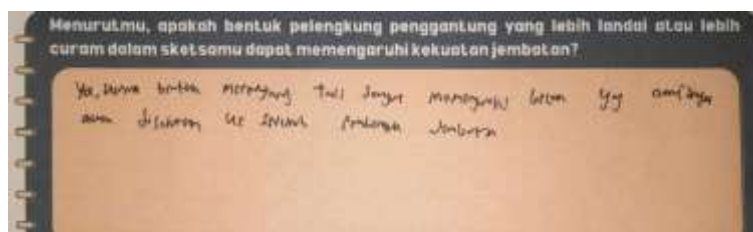 Menurutmu, apakah bentuk pelengkung penggantung yang lebih landai atau lebih
curam dalam sketsamu dapat memengaruhi kekuatan jembatan?
Ya, karena bentuk tali sangat beban yg nantinya
akan disalurkan ke seluruh jembatan